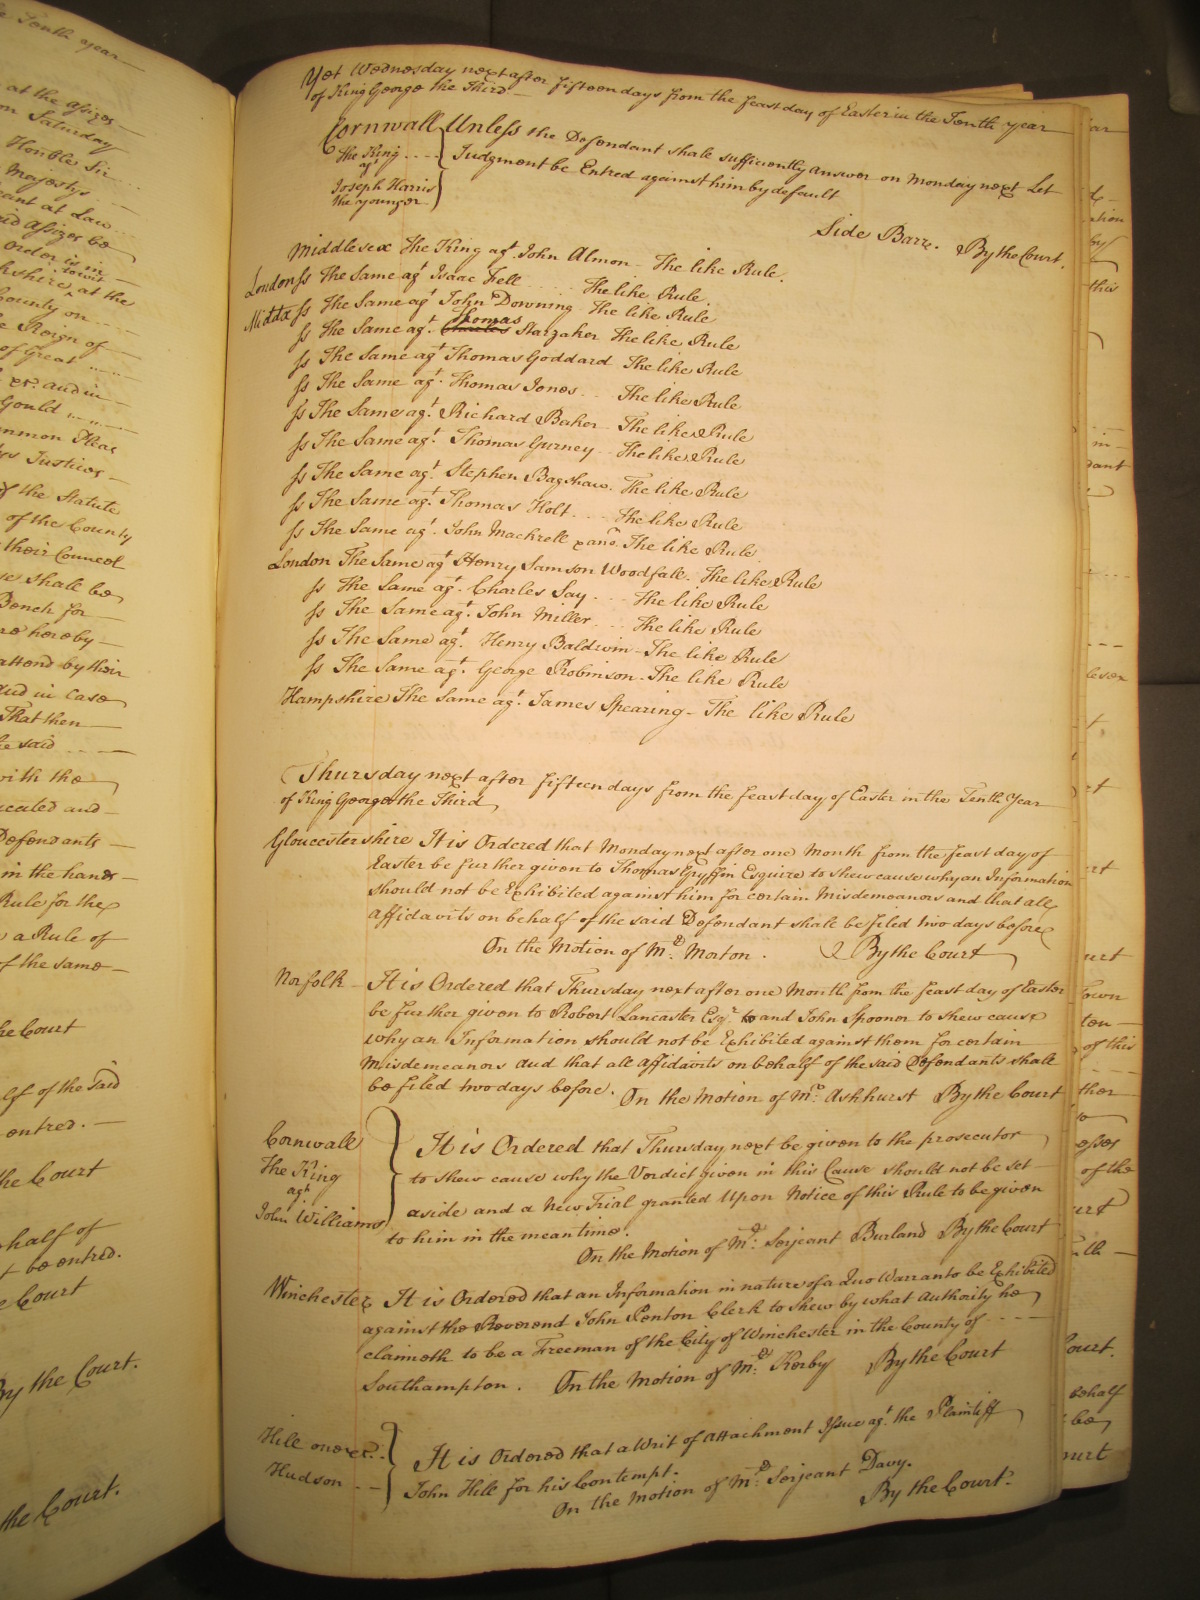 Yet Wednesday next after fifteen days from the feast day of Easter in the Tenth year
of King George the Third
Cornwall
The King
agt
Joseph Harris
the younger
Unless the Defendant shall sufficiently answer on Monday next Let
Judgment be Entred against him by default
Side Barr. By the Court.
Middlesex The King agt. John Almon - The like Rule.
London ss The Same agt Isaac Fell The like Rule.
Middx ss The Same agt John Downing The like Rule
ss The Same agt. Thomas Starzaker The like Rule
ss The Same agt Thomas Goddard The like Rule
ss The Same agt. Thomas Jones The like Rule
ss The Same agt. Richard Baker - The like Rule
ss The Same agt. Thomas Gurney - The like Rule
ss The Same agt. Stephen Bagshaw. The like Rule
ss The Same agt. Thomas Holt The like Rule
ss The Same agt. John Mackrell & ano. The like Rule
London The Same agt Henry Samson Woodfall. The like Rule
ss The Same agt. Charles Say The like Rule
ss The Same agt. John Miller The like Rule
ss The Same agt. Henry Baldwin - The like Rule
ss The Same agt. George Robinson - The like Rule
Hampshire The Same agt. James Spearing - The like Rule
Thursday next after fifteen days from the feast day of Easter in the Tenth Year
of King George the Third
Gloucestershire It is Ordered that Monday next after one Month from the feast day of
Easter be further given to Thomas Gryffin Esquire to shew cause why an Information
should not be Exhibited against him for certain Misdemeanors and that all
affidavits on behalf of the said Defendant shall be filed two days before
On the Motion of Mr. Morton. By the Court
Norfolk - It is Ordered that Thursday next after one Month from the feast day of Easter
be further given to Robert Lancaster Esqr. and John Spooner to shew cause
why an Information should not be Exhibited against them for certain
Misdemeanors and that all affidavits on behalf of the said Defendants shall
be filed two days before. On the Motion of Mr. Ashhurst By the Court
Cornwall
The King
agt
John Williams
It is Ordered that Thursday next be given to the prosecutor
to shew cause why the Verdict given in this Cause should not be set
aside and a New Trial granted Upon Notice of this Rule to be given
to him in the mean time.
On the Motion of Mr. Serjeant Burland By the Court
Winchester It is Ordered that an Information in nature of a Quo Warranto be Exhibited
against the Reverend John Penton Clerk to shew by what Authority he
claimeth to be a Freeman of the City of Winchester in the County of
Southampton. On the Motion of Mr. Kerby By the Court
Hill
Hudson
It is Ordered that a Writ of Attachment Issue agt. the Plaintiff
John Hill for his Contempt.
On the Motion of Mr. Serjeant Davy.
By the Court.